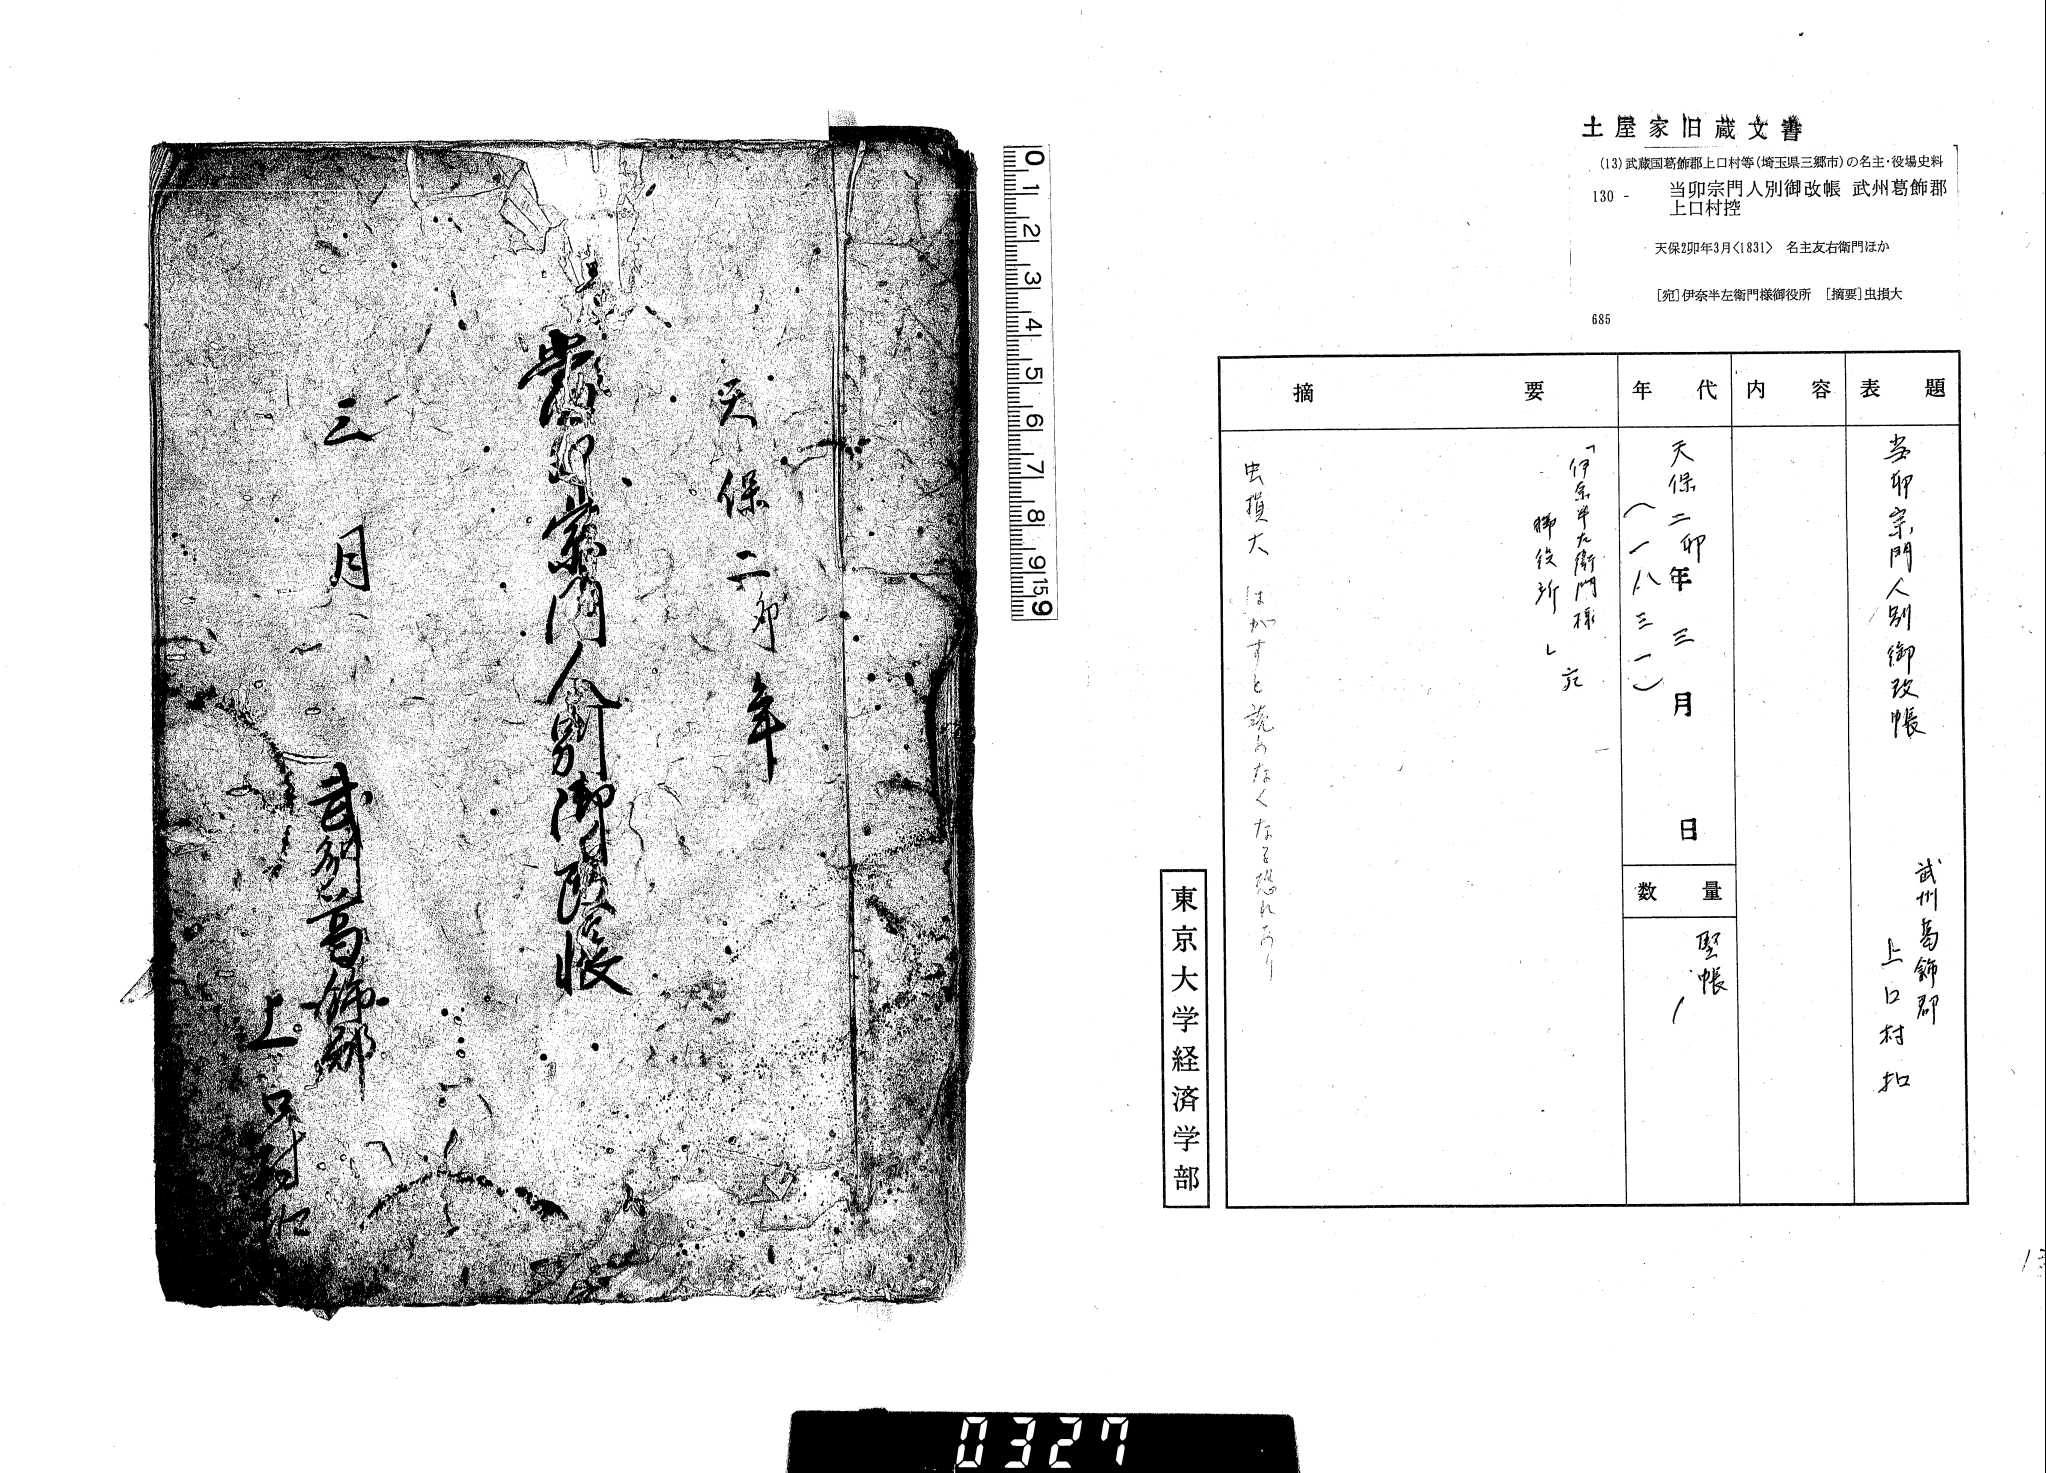 土屋家旧蔵文書
(13)武蔵国葛飾郡上口村等(埼玉県三郷市)の名主・役場史料
130 - 当卯宗門人別御改帳 武州葛飾郡
上口村控
天保2卯年3月<1831> 名主友右衛門ほか
[宛]伊奈半左衛門様御役所 [摘要]虫損大
685
表題
当卯宗門人別御改帳
武州葛飾郡
上口村扣
内容
年代
天保二卯年三月日
(一八三一)
数量
竪帳
1
摘要
「伊奈半左衛門様
御役所」宛
虫損大 はがすと読めなくなる恐れあり
東京大学経済学部
0 1 2 3 4 5 6 7 8 9 15 9
天保二卯年
當卯宗門人別御改帳
三月
武州葛飾郡
上口村
0327